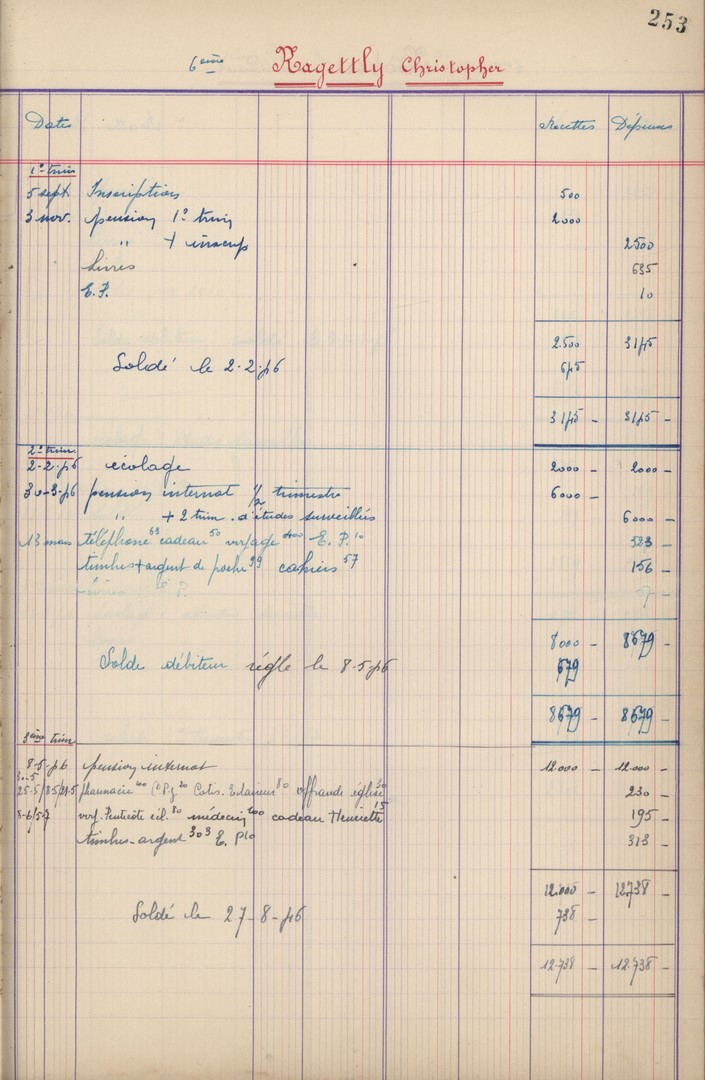 253
6ème Ragettly Christopher
Dates Recettes Dépenses
1er trim
5 sept Inscription 500
3 nov. pension 1er trim 2000
" + inscrip 2500
Livres 635
E.P. 10
2.500 3145
Soldé le 2-2-46 645
3145 - 3145 -
2e trim
2-2-46 écolage 2000 - 2000 -
30-3-46 pension internat 1/2 trimestre 6000 -
" + 2 trim. d'études surveillées 6000 -
13 mars téléphone 63 cadeau 50 400 E.P. 10 523 -
timbres + argent de poche 99 cahiers 57 156 -
8000 - 8679 -
Solde débiteur réglé le 8-5-46 679
8679 - 8679 -
3ème trim
8-5-46 pension internat 12.000 - 12.000 -
pharmacie Cotis. Eclaireur 80 offrande église 30 230 -
80 médecin 100 cadeau Henriette 15 195 -
timbres-argent 303 E.P 10 313 -
12.000 - 12738 -
Soldé le 27-8-46 738 -
12.738 - 12.738 -